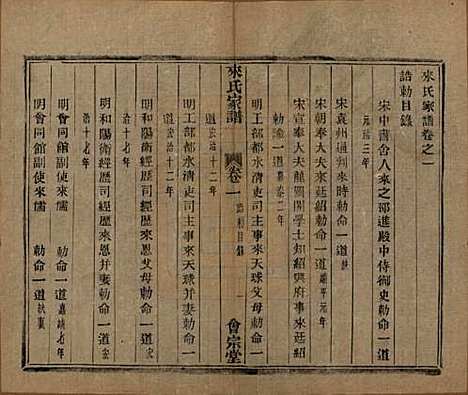 來氏家譜卷之一
誥勅目錄
宋中書舍人來之邵進殿中侍御史勅命一道
元祐三年
宋袁州通判來時勅命一道
宋朝奉大夫來廷紹勅命一道
宋宣奉大夫龍圖閣學士知紹興府事來廷紹
勅諭一道
明工部都水清吏司主事來天球父母勅命一
道弘治十二年
來氏家譜
卷一
誥勅目錄
一
會宗堂
明工部都水清吏司主事來天球并妻勅命一
道弘治十二年
明和陽衛經歷司經歷來恩父母勅命一道
治十七年
明和陽衛經歷司經歷來恩并妻勅命一道
治十七年
明會同館副使來儒 勅命一道嘉靖七年
明會同館副使來儒 勅命一道